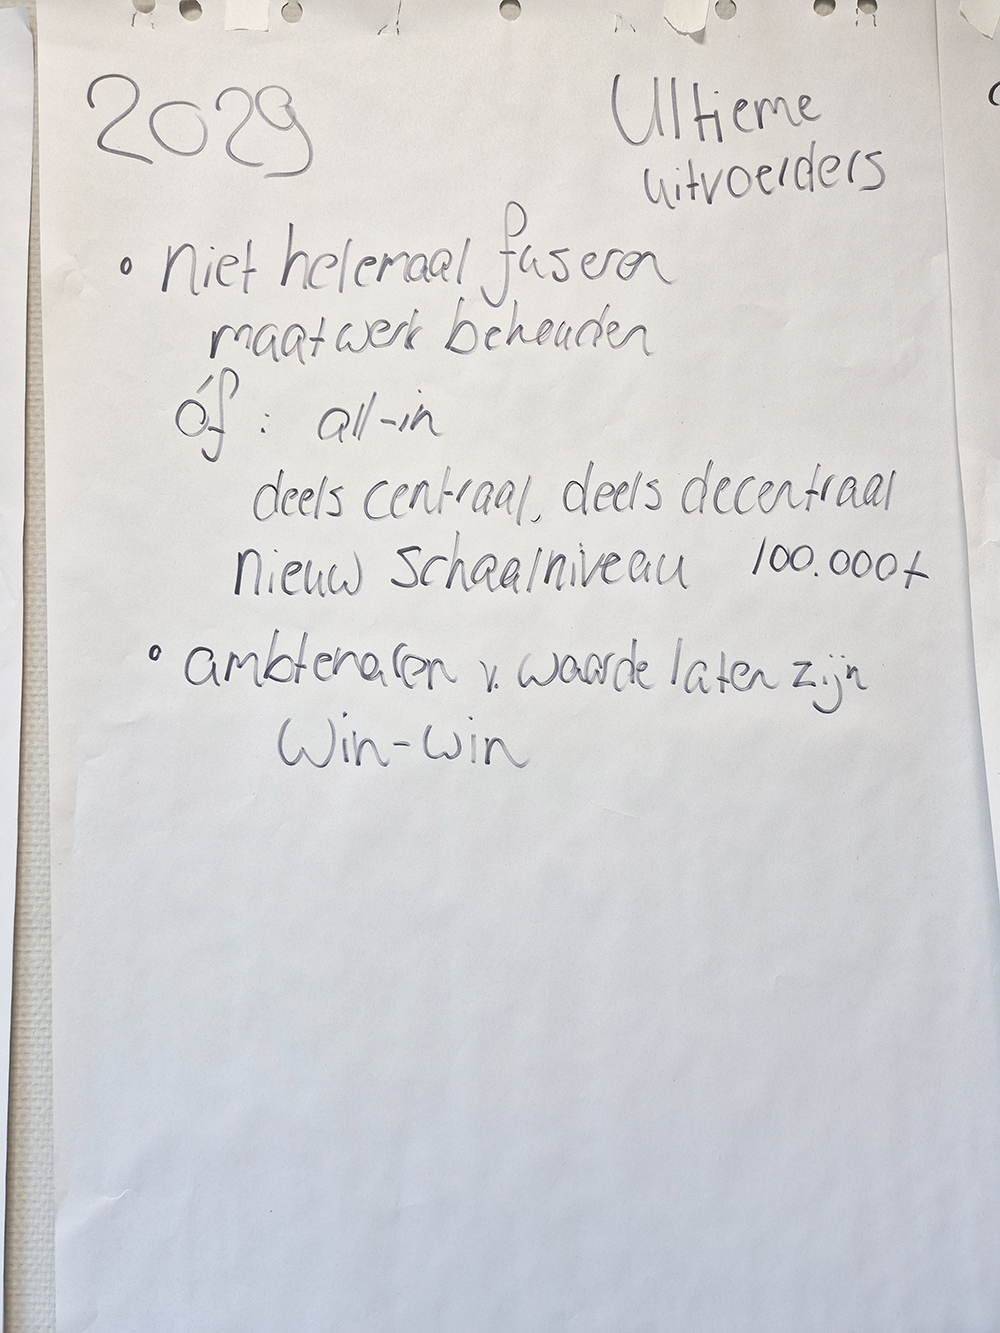 2029
Ultieme
uitvoerders
• niet helemaal fuseren
maatwerk behouden
óf: all-in
deels centraal, deels decentraal
nieuw schaalniveau 100.000+
• ambtenaren v. waarde laten zijn
Win-win